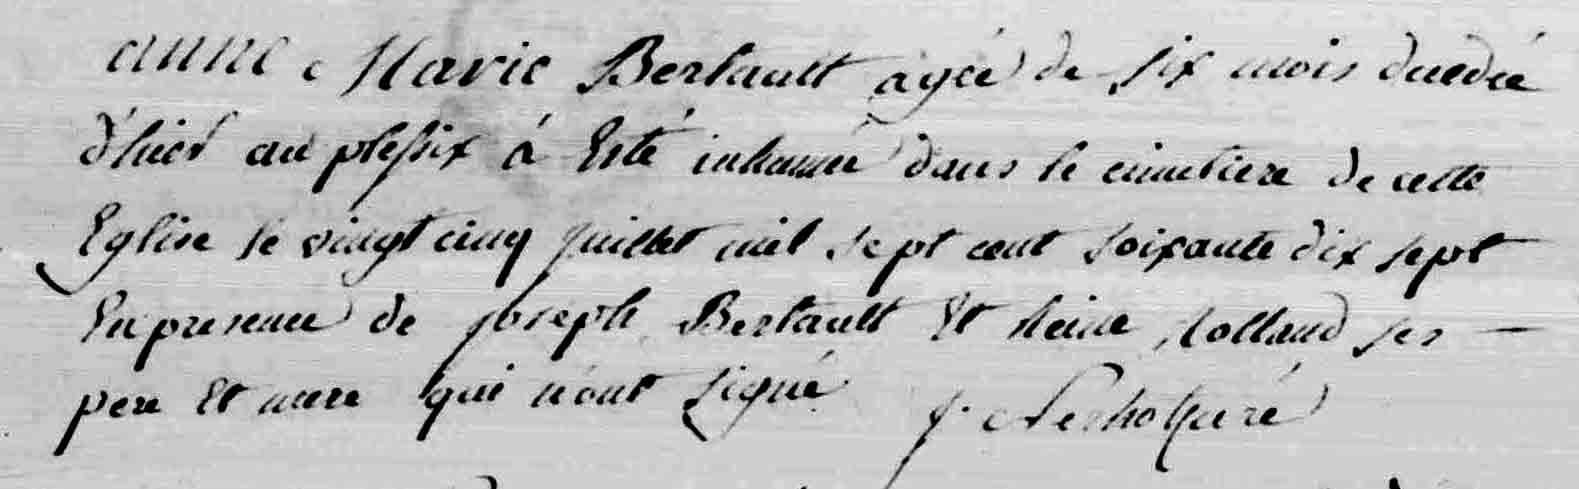 anne Marie Bertault agée de six mois décédée
d'hier au plessix à Esté inhumée dans le cimetiere de cette
Eglise le vingt cinq juillet mil sept cent soixante dix sept
En presence de joseph Bertault Et Reine Rolland ses
pere Et mere qui n'ont signé